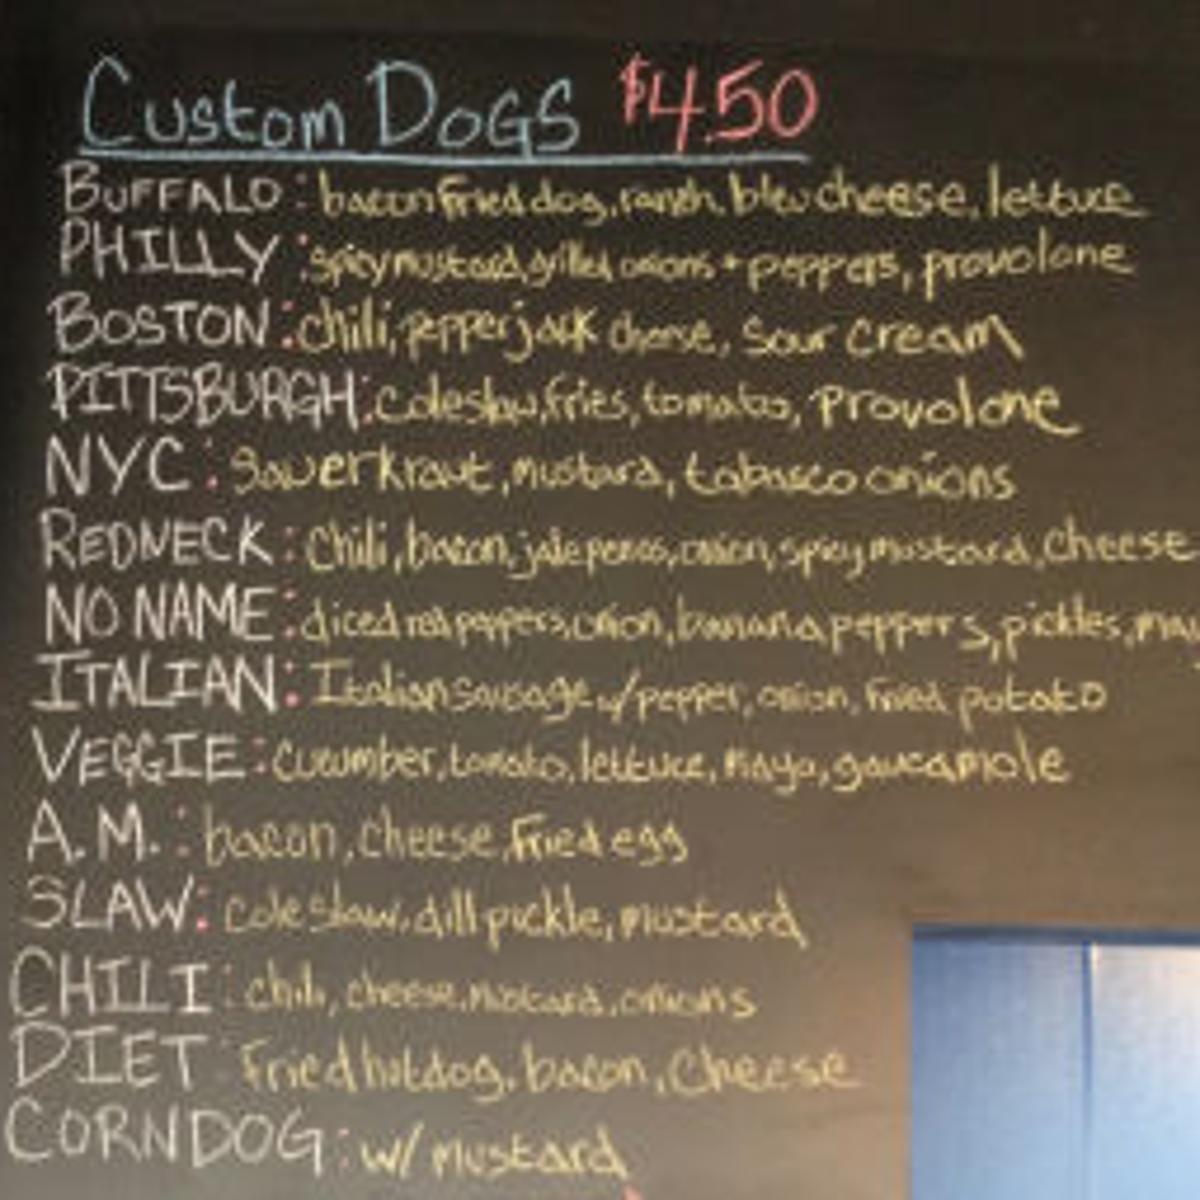 Custom Dogs $4.50
BUFFALO: bacon fried dog, ranch, bleu cheese, lettuce
PHILLY: spicy mustard, grilled onions + peppers, provolone
BOSTON: chili, pepperjack cheese, sour cream
PITTSBURGH: coleslaw, fries, tomato, provolone
NYC: Sauerkraut, mustard, tabasco onions
REDNECK: Chili, bacon, jalepenos, onion, spicy mustard, cheese
NO NAME: diced red peppers, onion, banana peppers, pickles, may
ITALIAN: Italian sausage w/ pepper, onion, fried potato
VEGGIE: cucumber, tomato, lettuce, mayo, gaucamole
A.M.: bacon, cheese, fried egg
SLAW: coleslaw, dill pickle, mustard
CHILI: chili, cheese, mustard, onions
DIET: Fried hotdog, bacon, cheese
CORNDOG: w/ mustard